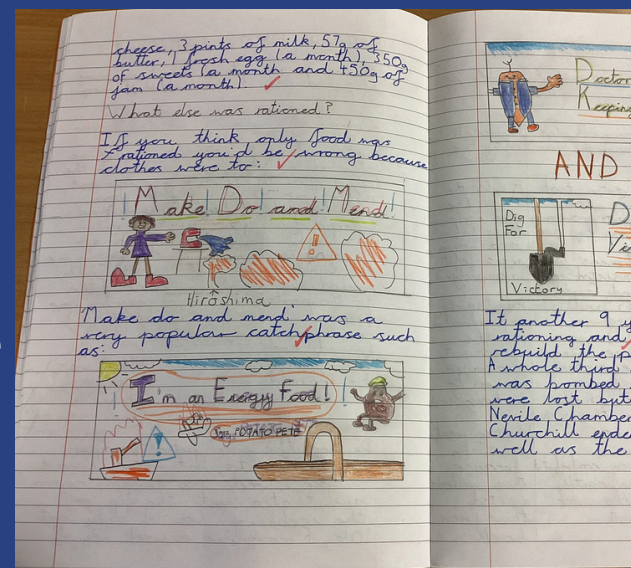 cheese, 3 pints of milk, 57g of
butter, 1 fresh egg (a month), 350g
of sweets (a month and 450g of
jam (a month).
What else was rationed?
If you think only food was
rationed you'd be wrong because
clothes were to:
Make Do and Mend!
Hiroshima
Make do and mend was a
very popular catchphrase such
as:
I'm an Energy Food!
POTATO PETE
Doctor
Keeping
AND
Dig
For
Victory
D
It another 9 y
rationing and
rebuild the p
A whole third
was bombed
were lost but
Nevile Chamber
Churchill ende
well as the